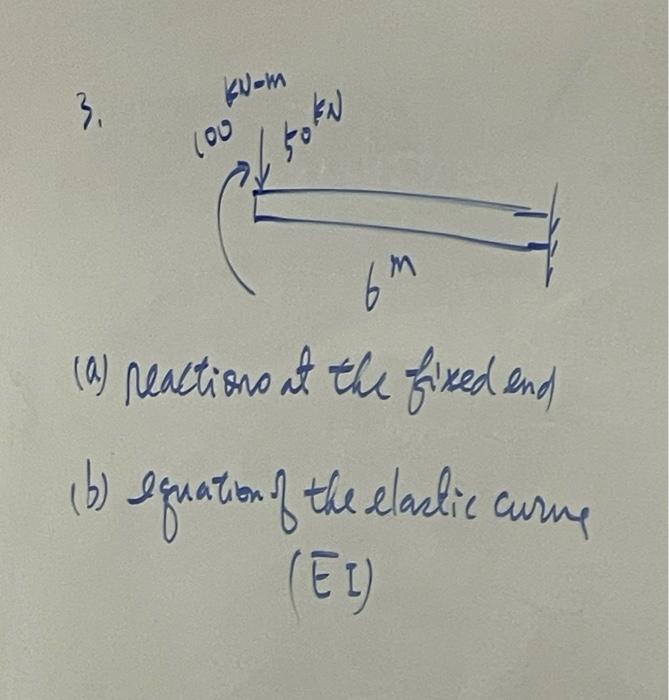 3.
100 kN-m
50 kN
6 m
(a) reactions at the fixed end
(b) equation of the elastic curve
(EI)